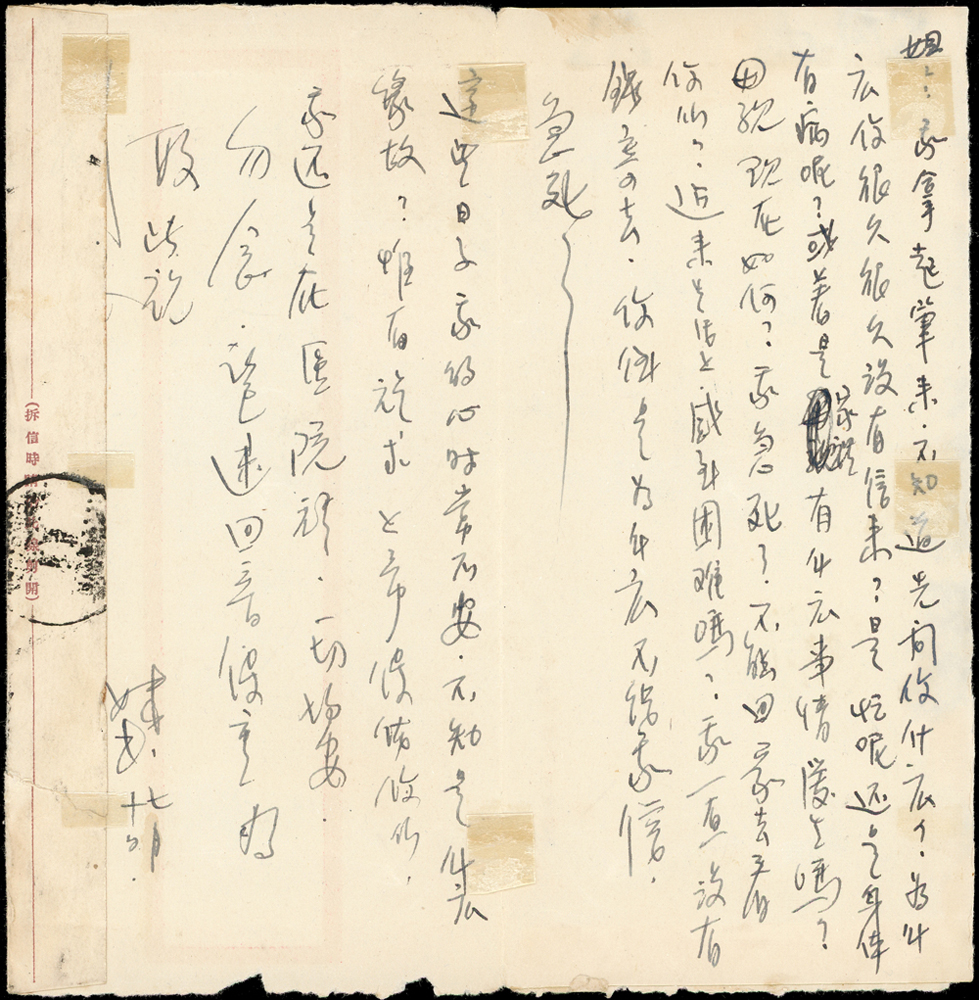 姐：我拿起筆來，不知道先問你什麼？為什
麼你很久很久沒有信來？是忙呢还是身体
有病呢？或着是家裡有什么事情發生嗎？
母親現在如何？我急死了，不能回家去看
你们？近来生活上感到困難嗎？我一直沒有
錢寄回去，你倒是為什麼不给我信，
急死
這些日子我的心时常不安，不知是什麼
缘故？惟有祈求上帝保佑你们，
我还是在医院裡，一切均安
勿念，請速回音保重為
致此祝
妹，上 七月十
(拆信時請 剪開)